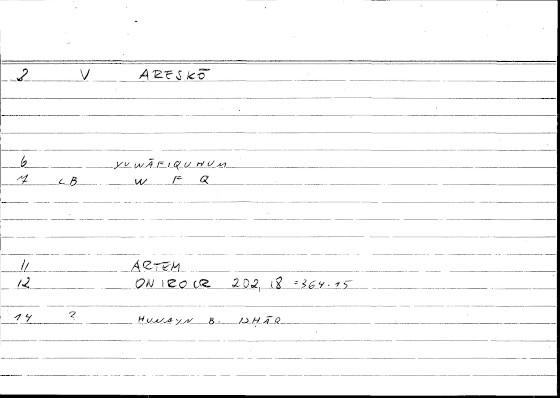 2 V ARESKŌ
6 YUWĀFIQUHUM
7 LB W F Q
11 ARTEM
12 ONIROCR 202,18 = 364.15
14 ? HUNAYN B. ISHĀQ